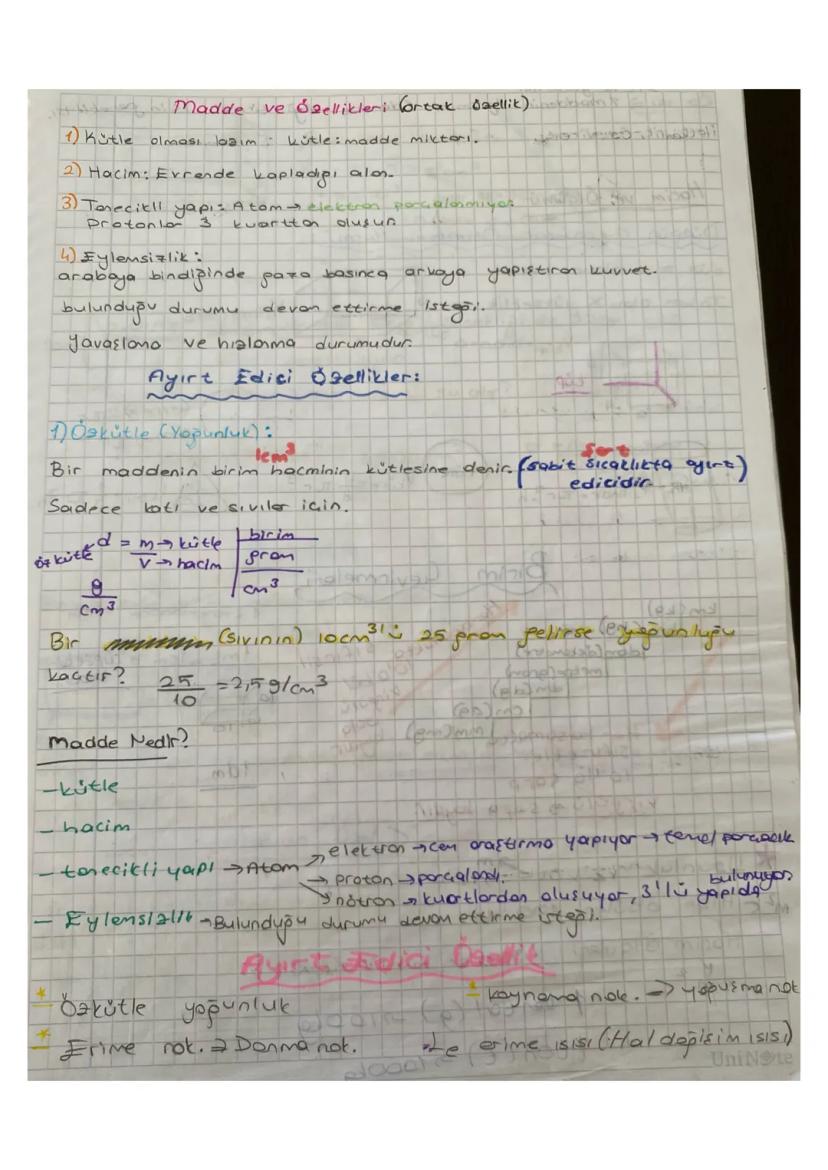 Madde ve Özellikleri (ortak özellik)
1) Kütle olması lazım : kütle : madde miktarı.
2) Hacim : Evrende kapladığı alan.
3) Tanecikli yapı : Atom → elektron parçalanmıyor.
Protonlar 3 kuarktan oluşur.
4) Eylemsizlik :
arabaya bindiğinde gaza basınca arkaya yapıştıran kuvvet.
bulunduğu durumu devam ettirme isteği.
Yavaşlama ve hızlanma durumudur.
Ayırt Edici Özellikler :
1) Özkütle (Yoğunluk) :
1cm³ Şart
Bir maddenin birim hacminin kütlesine denir. (Sabit sıcaklıkta ayırt edicidir.)
Sadece katı ve sıvılar için.
özkütle d = m → kütle birim
V → hacim gram
g/cm³ cm³
Bir (sıvının) 10cm³'ü 25 gram gelirse yoğunluğu
kaçtır? 25/10 = 2,5 g/cm³
Madde Nedir?
- kütle
- hacim
- tanecikli yapı → Atom → elektron → cern araştırma yapıyor → temel parçacık
→ proton → parçalandı.
→ nötron → kuarklardan oluşuyor, 3'lü yapıda bulunuyor
- Eylemsizlik → Bulunduğu durumu devam ettirme isteği.
Ayırt Edici Özellik
* Özkütle yoğunluk
* kaynama nok. → yoğuşma nok
* Erime nok. → Donma nok.
* Le erime ısısı (Hal değişim ısısı)
UniNote